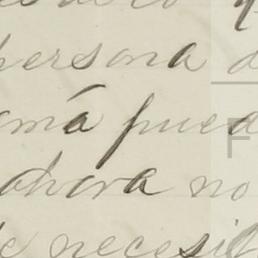 persona
má pued
ahora no
necesit